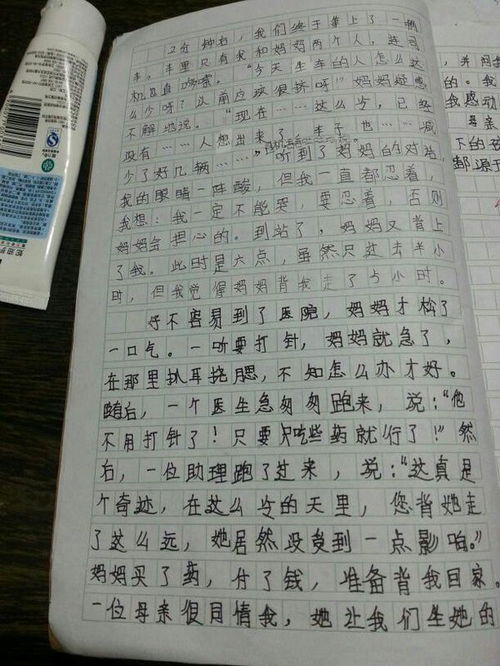 2分钟后，我们终于等上了一辆
车，车里只有我和妈妈两个人，连司
机直直哆嗦。"今天坐车的人怎么这
么少呀？以前应该很挤呀"妈妈疑惑
不解地说。"现在……这么少，已经
没有……人想出来了，车子，也……减
少了好几辆……"听到了妈妈的对话，
我的眼睛一阵酸，但我一直都忍着，
我想：我一定不能哭，要忍着，否则
妈妈会担心的。到站了，妈妈又背上
了我。此时是六点，虽然只过去半小
时，但我觉得妈妈背我走了5小时。
好不容易到了医院，妈妈才松了
一口气。一听要打针，妈妈就急了，
在那里扒耳挠腮，不知怎么办才好。
随后，一个医生急匆匆跑来，说："他
不用打针了！只要只吃些药就行了！"然
后，一位助理跑了过来，说："这真是
个奇迹，在这么冷的天里，您背她走
了这么远，她居然没受到一点影响。"
妈妈买了药，付了钱，准备背我回家。
一位母亲很同情我，她让我们坐她的
并用
的。我
我感动
母亲
下的
都源于